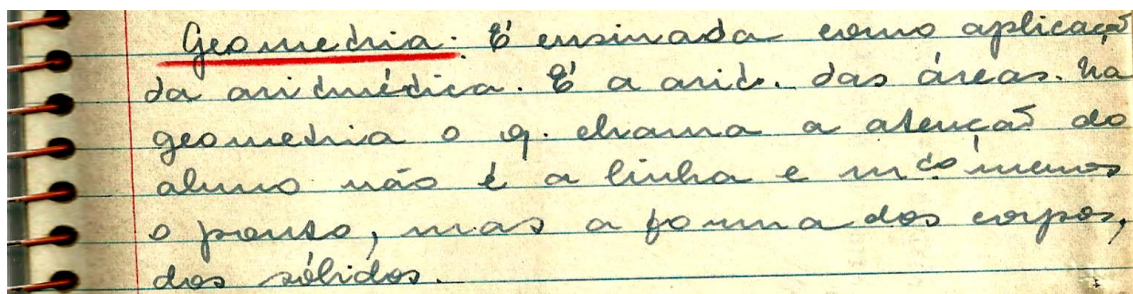 Geometria: É ensinada como aplicação
da aritmética. É a arit. das áreas. Na
geometria o q. chama a atenção do
aluno não é a linha e mto menos
o ponto, mas a forma dos corpos,
dos sólidos.